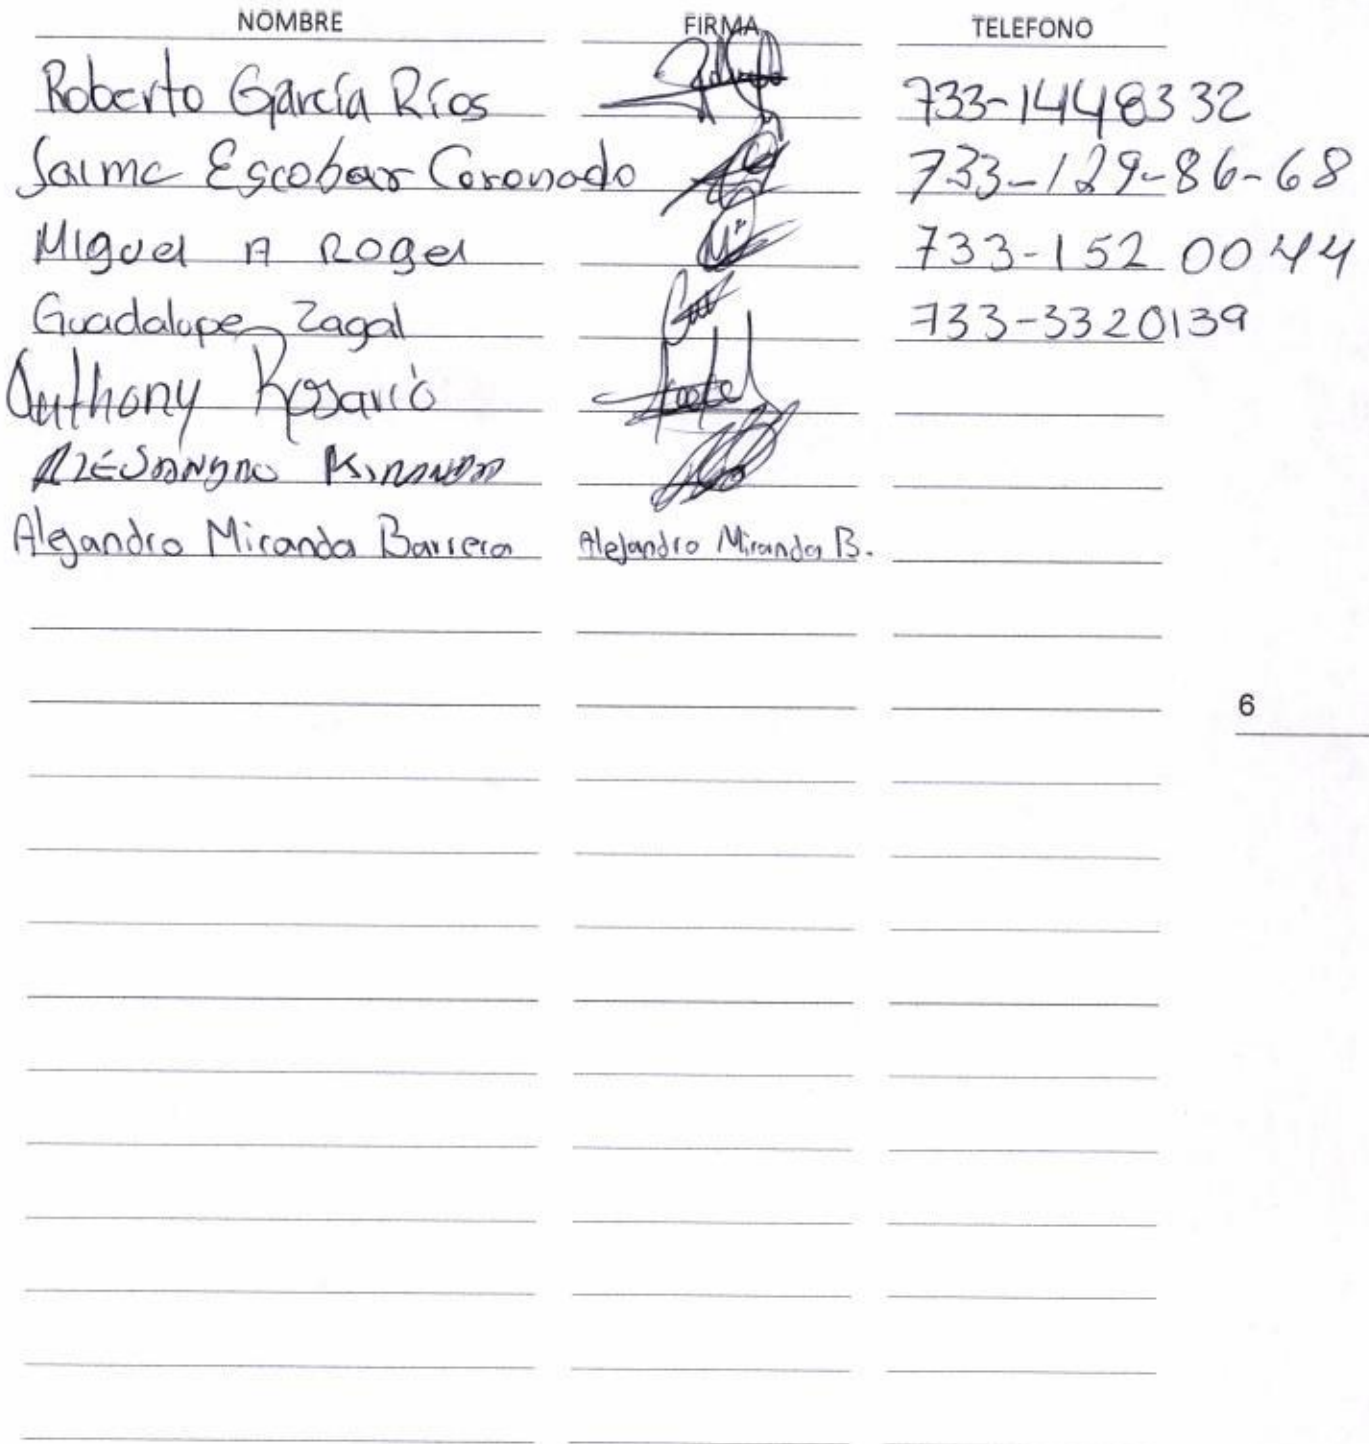 NOMBRE FIRMA TELEFONO
Roberto García Ríos 733-1448332
Jaime Escobar Coronado 733-129-86-68
Miguel A Rogel 733-152 00 44
Guadalupe Zagal 733-3320139
Anthony Rosario
Alejandro Miranda
Alejandro Miranda Barrera Alejandro Miranda B.
6